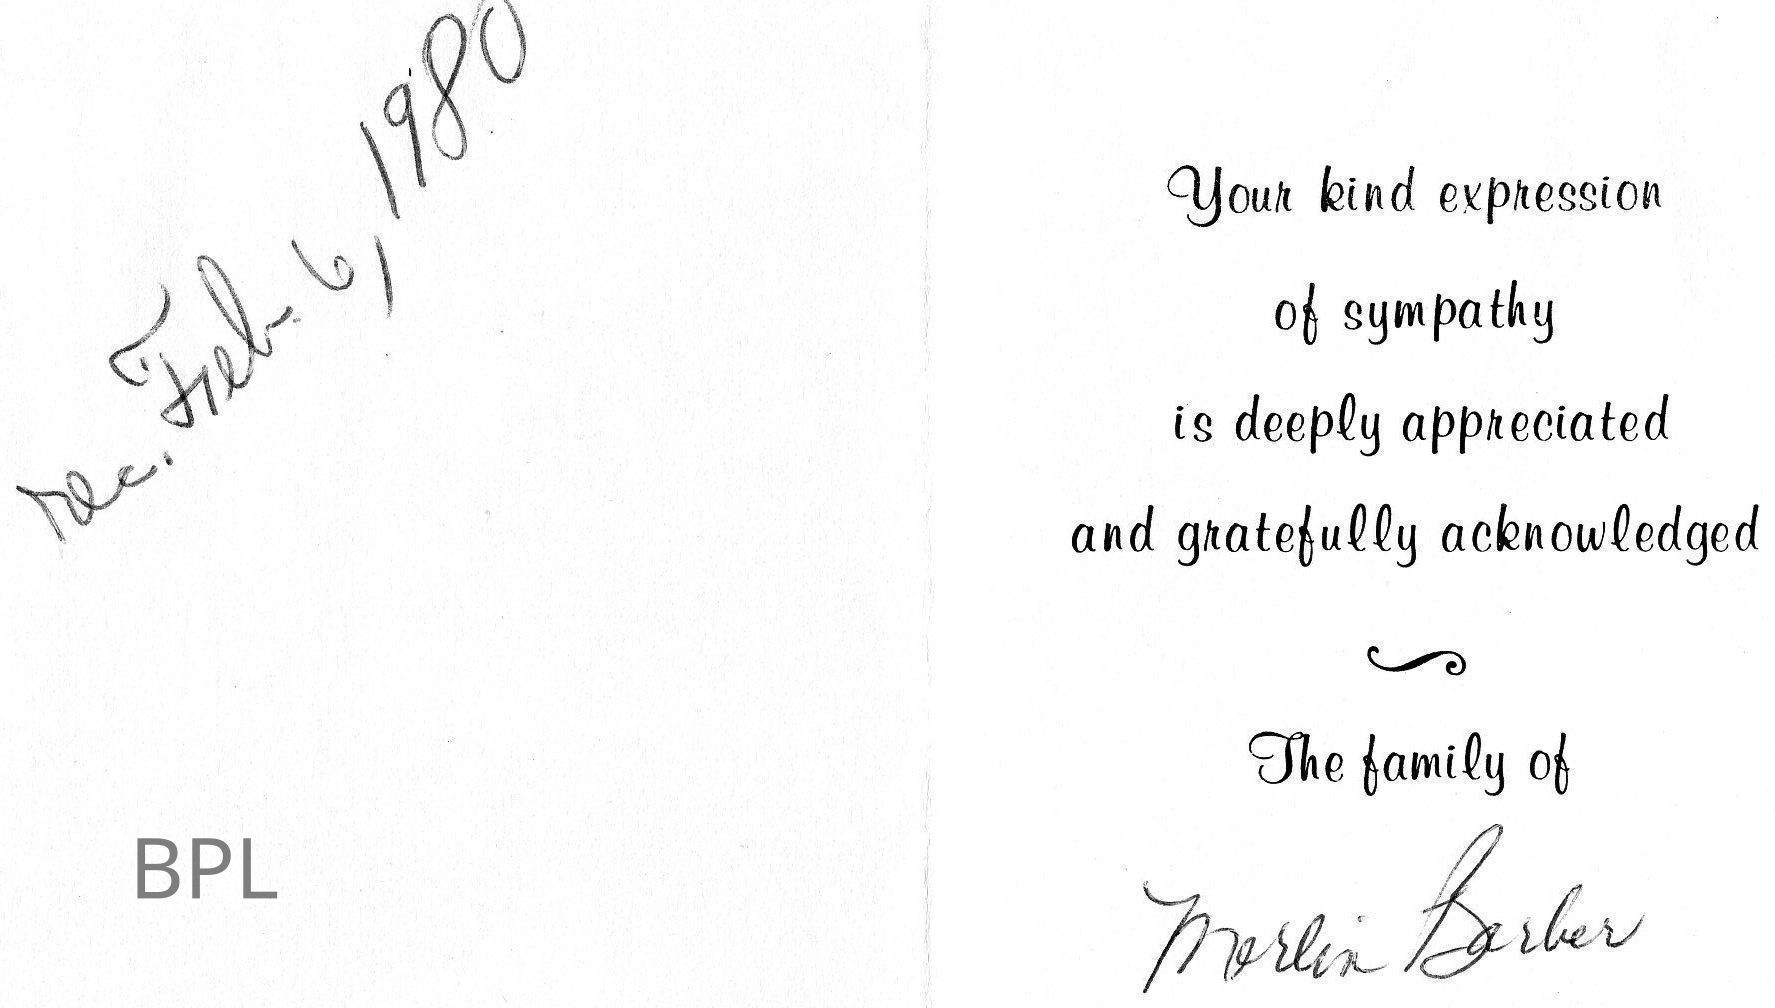 rec. Feb. 6, 1980
BPL
Your kind expression
of sympathy
is deeply appreciated
and gratefully acknowledged
The family of
Merlin Barber